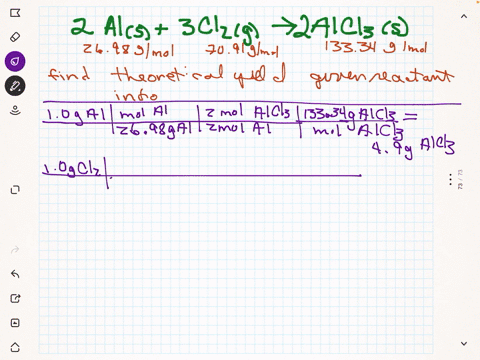 2 Al(s) + 3Cl₂(g) → 2AlCl₃(s)
26.98 g/mol 70.91 g/mol 133.34 g/mol
find theoretical yield given reactant
info
1.0g Al | mol Al | 2 mol AlCl₃ | 133.34g AlCl₃ =
26.98g Al | 2 mol Al | mol AlCl₃
4.9g AlCl₃
1.0g Cl₂
73 / 73